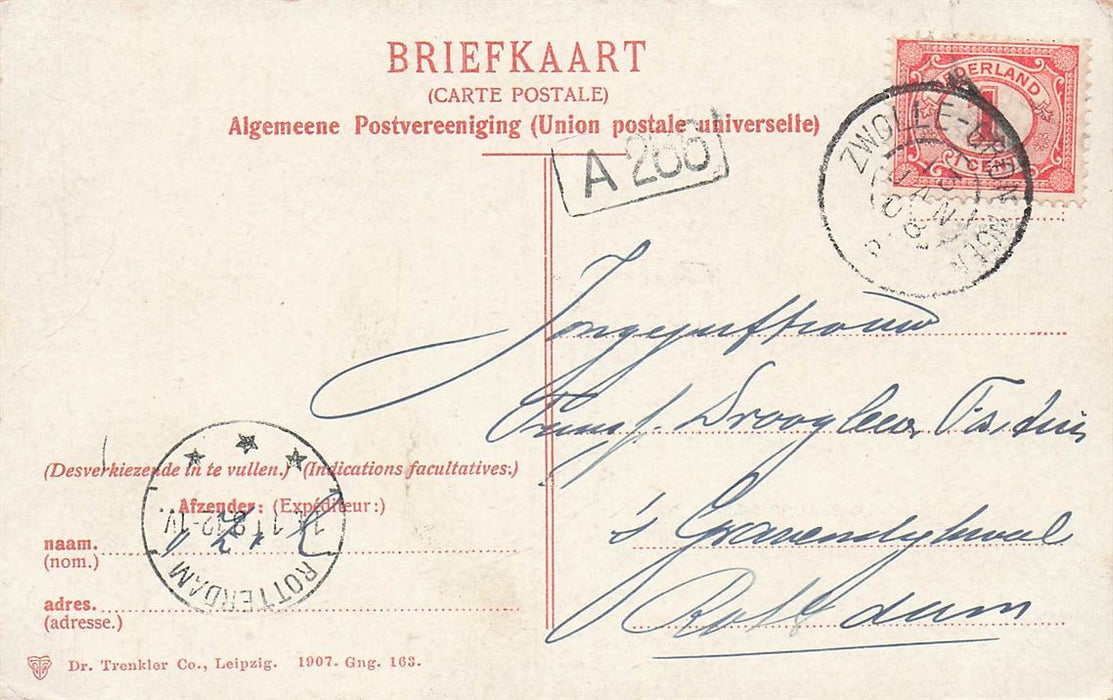 BRIEFKAART
(CARTE POSTALE)
Algemeene Postvereeniging (Union postale universelle)
NEDERLAND
1
CENT
ZWOLLE-GRONINGEN
13
JAN
08
A 266
Jongejuffrouw
Droogleever
's Gravendykwal
Rottdam
(Desverkiezende in te vullen.) (Indications facultatives:)
Afzender: (Expéditeur:)
naam.
(nom.)
adres.
(adresse.)
ROTTERDAM
Dr. Trenkler Co., Leipzig. 1907. Gng. 163.